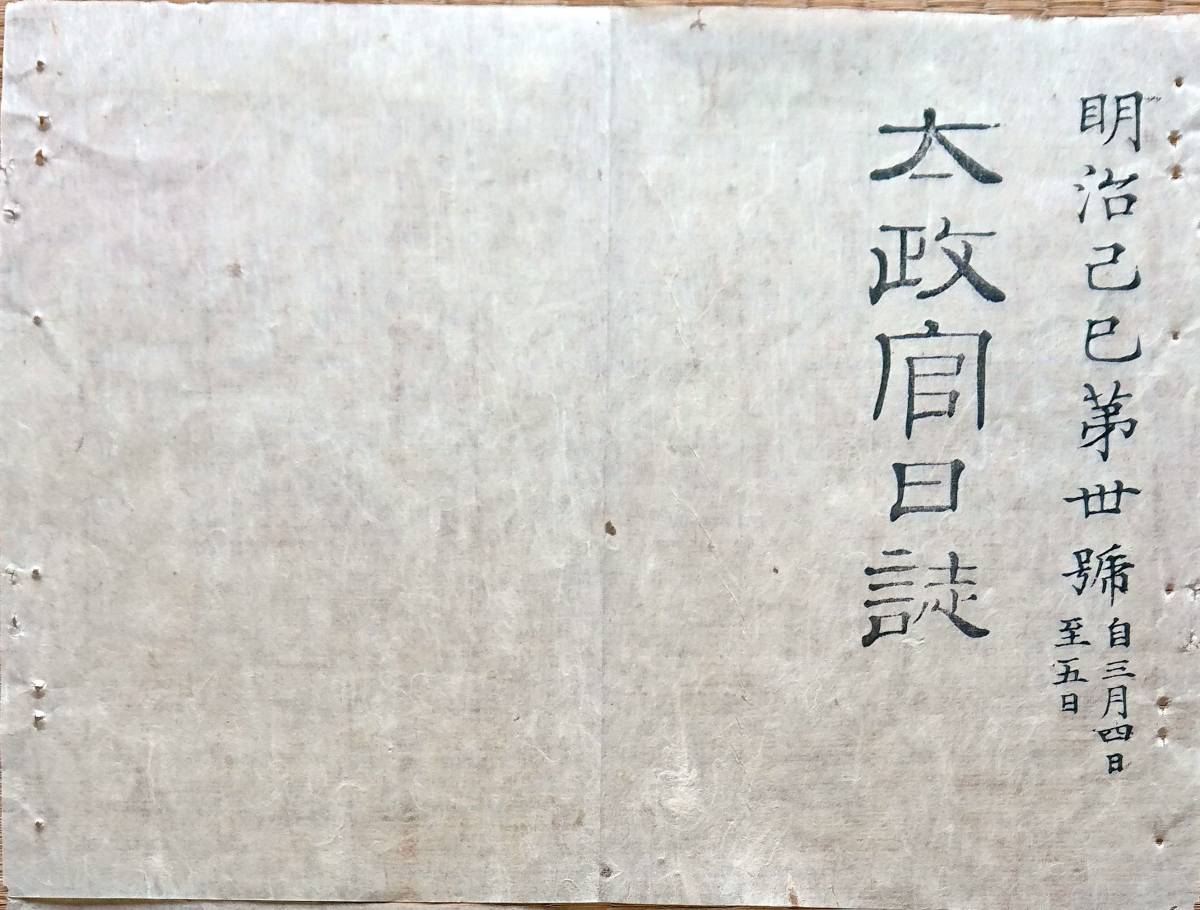 明治己巳第丗號 自三月四日
至五日
太政官日誌